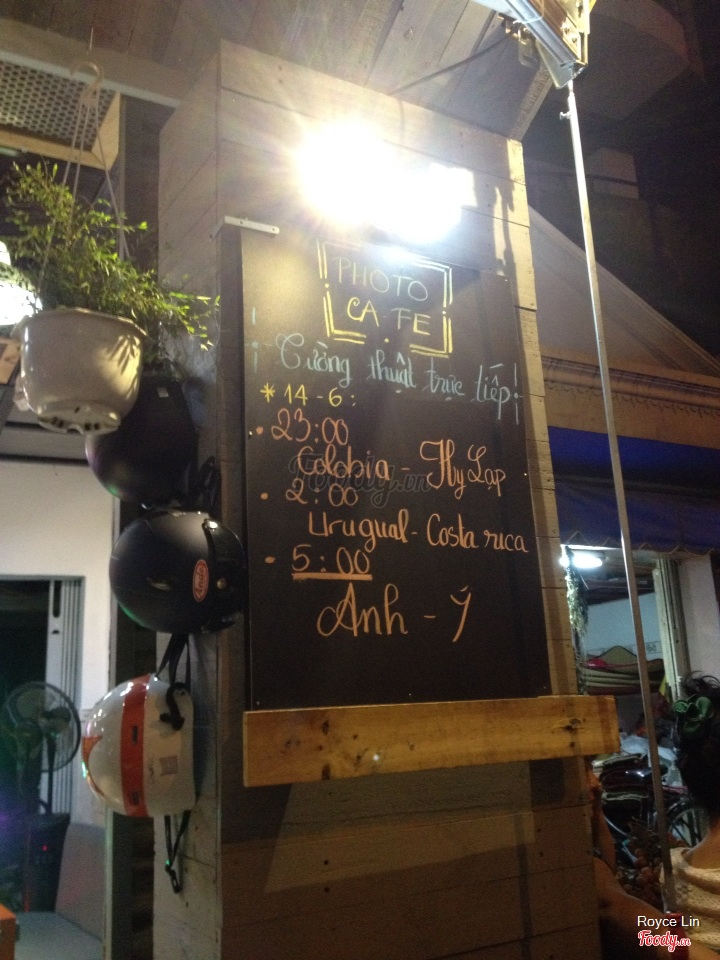 PHOTO
CAFE
Tường thuật trực tiếp
* 14-6:
• 23:00
Colobia - Hy Lạp
• 2:00
Urugual - Costa rica
• 5:00
Anh - Ý
Foody.vn
Royce Lin
Foody.vn